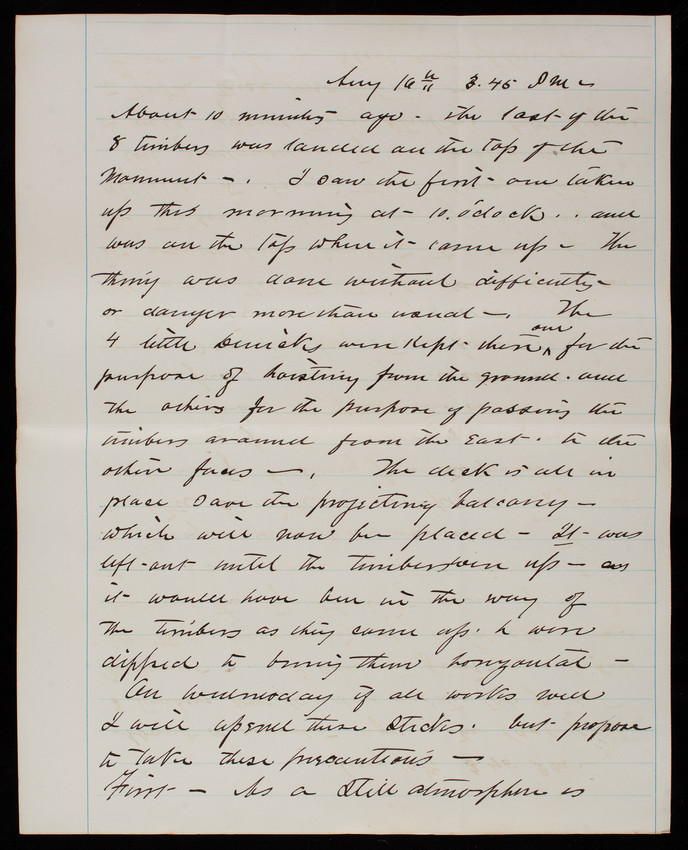 Aug 16th 3.45 PM
About 10 minutes ago - the last of the
8 timbers was landed on the top of the
Monument - . I saw the first - one taken
up this morning at - 10. o'clock . . and
was on the top when it - came up - The
thing was done without difficulty -
or danger more than usual - . The
4 little Derricks were kept - there, one for the
purpose of hoisting from the ground . and
the others for the purpose of passing the
timbers around from the East . to the
other faces - . The deck is all in
place save the projecting balcony -
which will now be placed - It - was
left - out until the timbers were up - as
it would have been in the way of
the timbers as they came up . & were
dipped to bring them horizontal -
On Wednesday if all works well
I will upend these sticks . but propose
to take these precautions -
First - As a still atmosphere is